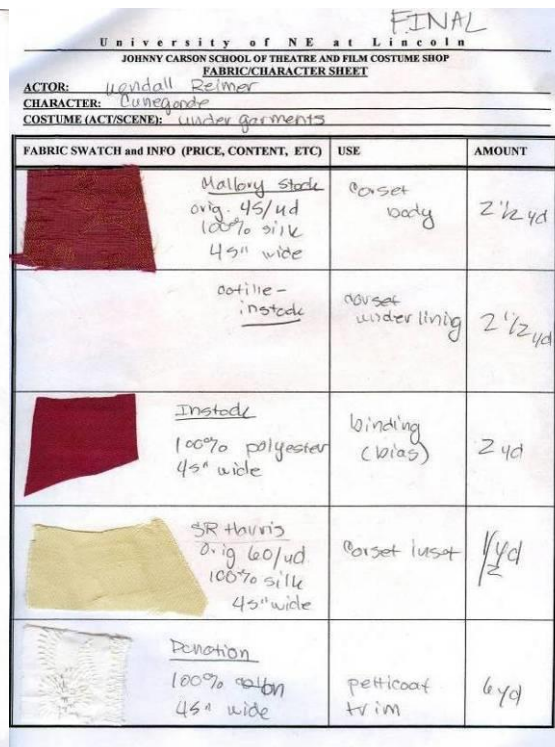 FINAL
University of NE at Lincoln
JOHNNY CARSON SCHOOL OF THEATRE AND FILM COSTUME SHOP
FABRIC/CHARACTER SHEET
ACTOR: Kendall Reimer
CHARACTER: Cunegonde
COSTUME (ACT/SCENE): under garments
FABRIC SWATCH and INFO (PRICE, CONTENT, ETC) USE AMOUNT
Mallory stock
orig. 45/yd
100% silk
45" wide
corset
body
2 1/2 yd
cotille-
instock
corset
underlining
2 1/2 yd
Instock
100% polyester
45" wide
binding
(bias)
2 yd
SR Harris
Orig 60/yd
100% silk
45" wide
Corset inset
yd
Donation
100%
45" wide
petticoat
trim
6 yd